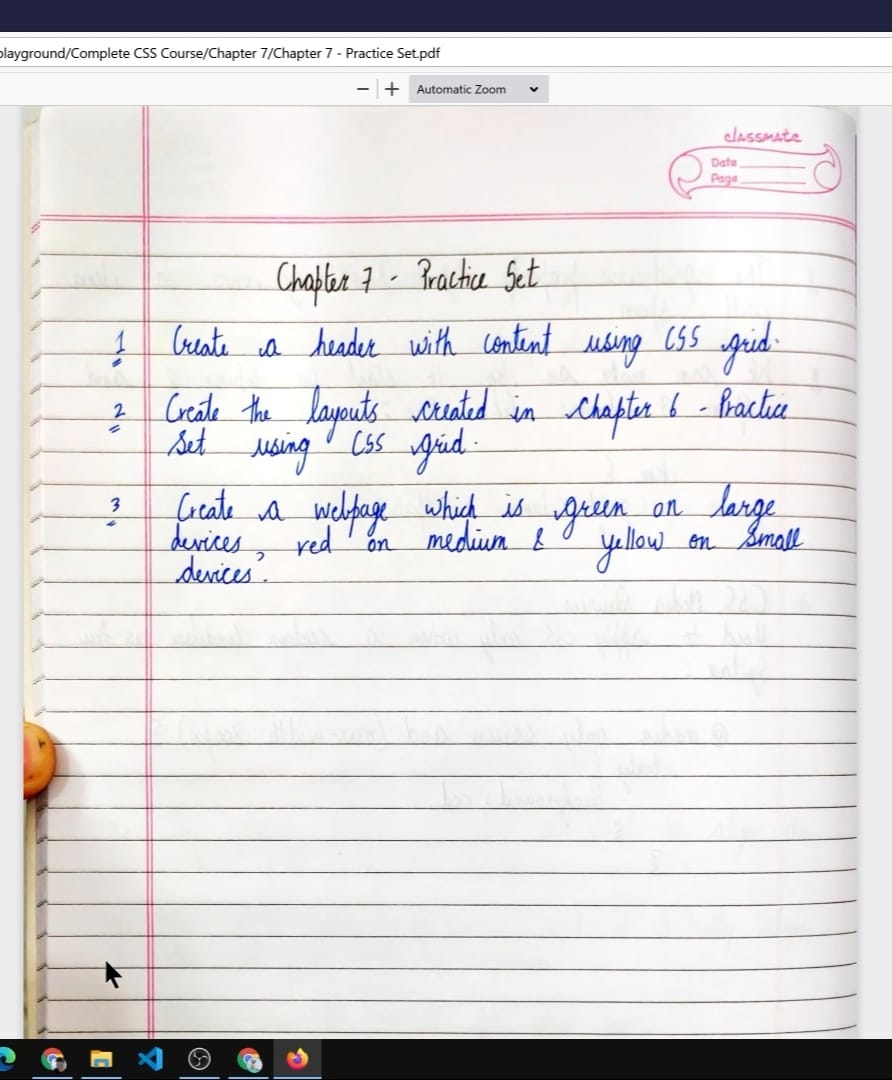 playground/Complete CSS Course/Chapter 7/Chapter 7 - Practice Set.pdf
Automatic Zoom
classmate
Date
Page
Chapter 7 - Practice Set
1 Create a header with content using CSS grid.
2 Create the layouts created in Chapter 6 - Practice
Set using CSS grid.
3 Create a webpage which is green on large
devices, red on medium & yellow on small
devices.